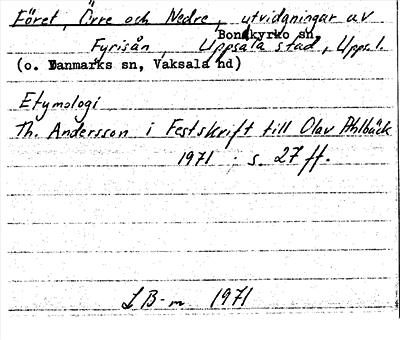 Föret, Övre och Nedre, utvidgningar av
Bondkyrko sn,
Fyrisån, Uppsala stad, Uppl.
(o. Danmarks sn, Vaksala hd)
Etymologi
Th. Andersson i Festskrift till Olav Ahlbäck
1971, s. 27 ff.
LB-m 1971